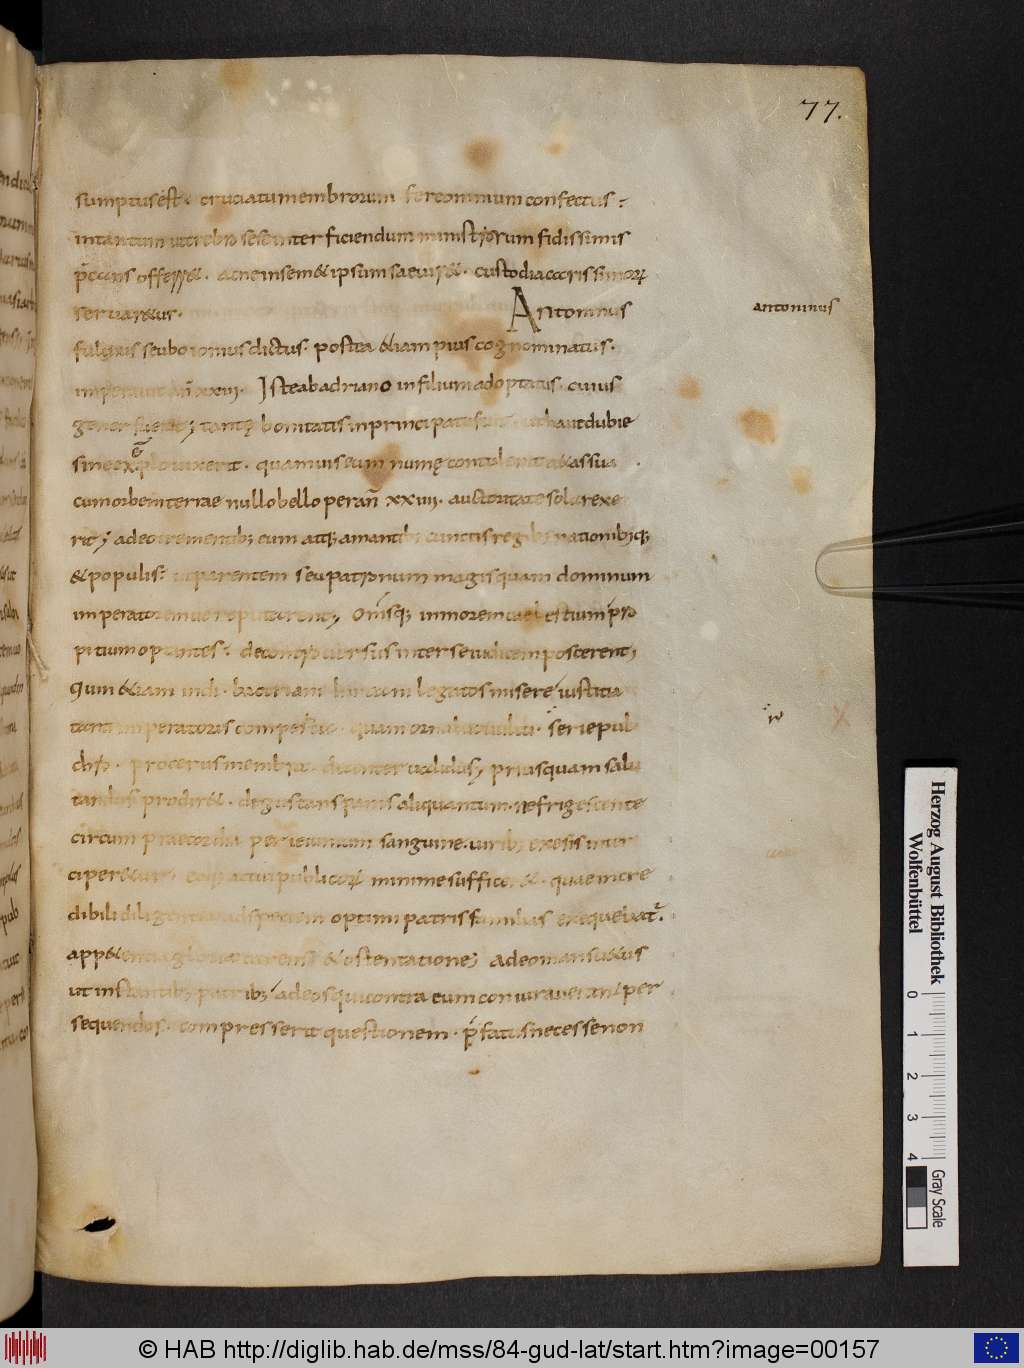 77.
sumptus est. cruciatu membrorum fere omnium confectus:
in tantum ut crebro sese interficiendum ministrorum fidissimis
p̄cans offerr&. ac ne in sem& ipsum saevir&. custodia carissimorꝝ
servar&ur. Antoninus
antoninus
fulgius seu boionius dictus. postea &iam pius cognominatus.
imperavit añ xxiii. Iste ab adriano in filium adoptatus. cuius
gener fuerat; tantę bonitatis in principatu fuit. ut haut dubie
sine exēplo vixerit. quamvis eum numę contulerit a&as sua
cum orbem terrae nullo bello per añ xxiiii. auctoritate sola rexe
rit; adeo trementibꝫ eum atqꝫ amantibꝫ cunctis regibꝫ nationibꝫqꝫ
& populis: ut parentem seu patronum magis quam dominum
imperatoremve reputarent; Om̄sqꝫ in morem caelestium pro
pitium optantes: de controversiis inter se iudicem poscerent;
Quin &iam indi. bactriani hircani legatos misere iustitia
tanti imperatoris comperta. quam ornabat vultu. serie pul
chro. procerus membra. decenter validus; priusquam salu
tandus prodir&. degustans panis aliquantum. ne frigescente
circum praecordia per ieiunium sanguine. viribꝫ exesis inter
ciper&ur; eoqꝫ actui publicorꝝ minime suffic&. quae incre
dibili diligentia ad speciem optimi patris familias exequebatᷣ.
app&entia gloriae carens & ostentatione; Adeo mansu&us
ut instantibꝫ patribꝫ ad eos qui contra eum coniuraverant per
sequendos. compresserit questionem. p̄fatus necesse non
Herzog August Bibliothek
Wolfenbüttel
0 1 2 3 4
Gray Scale
© HAB http://diglib.hab.de/mss/84-gud-lat/start.htm?image=00157